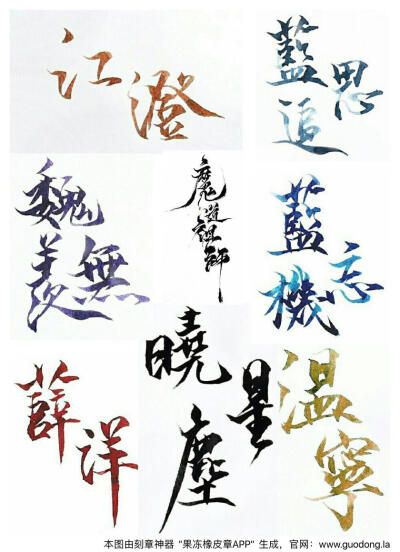 江澄
藍思追
魏無羨
魔道祖師
藍忘機
薛洋
曉星塵
温寧
本图由刻章神器“果冻橡皮章APP”生成，官网：www.guodong.la